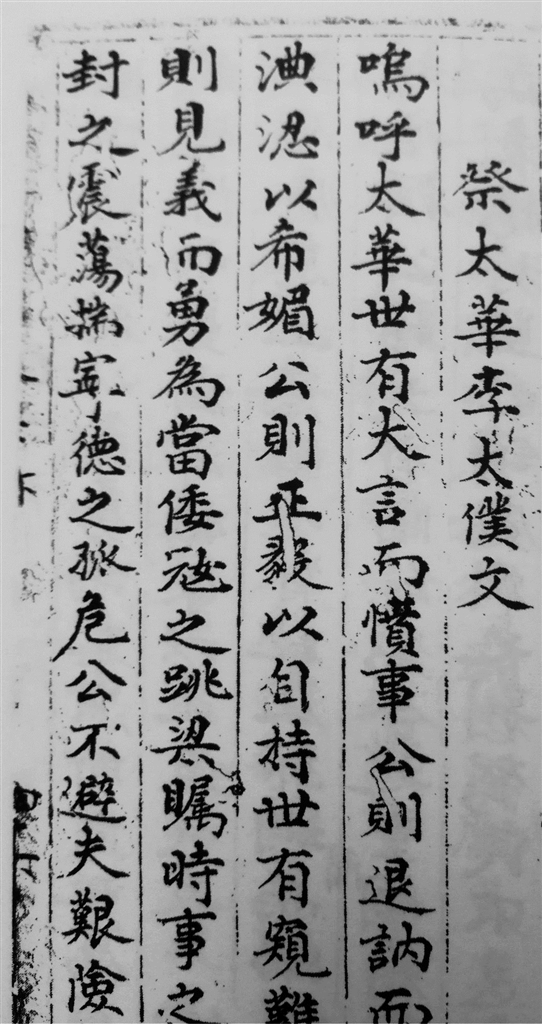 祭太華李太僕文
嗚呼太華世有大言而憒事公則退訥而
淟涊以希媚公則正毅以自持世有窺難
則見義而勇為當倭寇之跳梁矚時事之
封之震蕩揣寧德之孤危公不避夫艱險